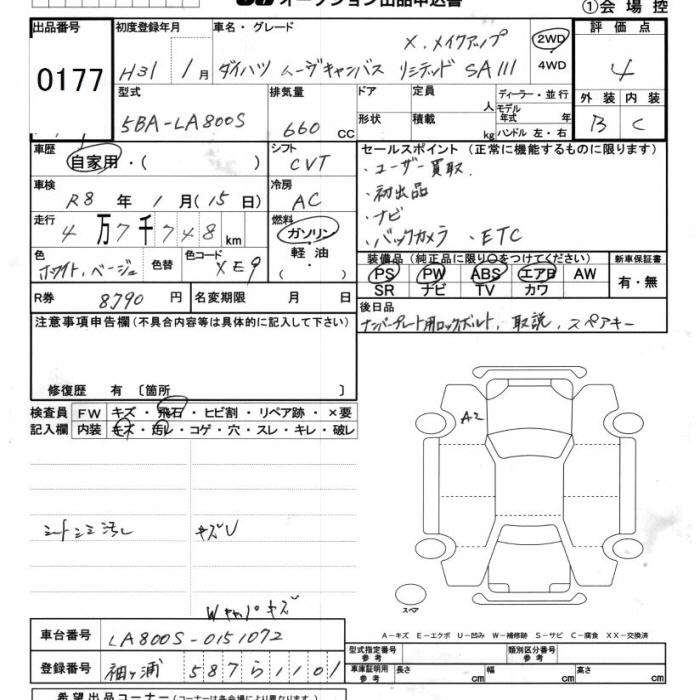 オークション出品申込書 ①会場控
出品番号 初度登録年月 車名・グレード 評価点
0177 H31 1月 ダイハツ ムーヴキャンバス X.メイクアップ リミテッド SAIII 2WD 4WD 4
型式 排気量 ドア 定員 人 ディーラー・並行 外装 内装
5BA-LA800S 660 CC 形状 積載 kg モデル年式 年 ハンドル 左・右 B C
車歴 シフト セールスポイント (正常に機能するものに限ります)
自家用・( ) CVT ・ユーザー買取.
車検 冷房 ・初出品
R8 年 1 月(15 日) AC ・ナビ
走行 燃料 ・バックカメラ ・ETC
4万7千748km ガソリン・軽油・( )
色 色替 色コード 装備品(純正品に限り○をつけてください) 新車保証書
ホワイト.ベージュ XE9 PS PW ABS エアB AW 有・無
SR ナビ TV カワ
R券 8790 円 名変期限 月 日 後日品
注意事項申告欄(不具合内容等は具体的に記入して下さい) ナンバープレート用ロックボルト, 取説, スペアキー
修復歴 有〔箇所 〕
検査員 FW キズ・飛石・ヒビ割・リペア跡・×要
記入欄 内装 キズ・汚レ・コゲ・穴・スレ・キレ・破レ
A2
シートシミ汚レ キズU
スペア
A-キズ E-エクボ U-凹み W-補修跡 S-サビ C-腐食 XX-交換済
車台番号 LA800S-0151072 型式指定番号 参考 類別区分番号 参考
登録番号 袖ヶ浦 587ら1101 車庫証明用 参考 長さ cm 幅 cm 高さ cm
希望出品コーナー(コーナーは各会場により異なります)